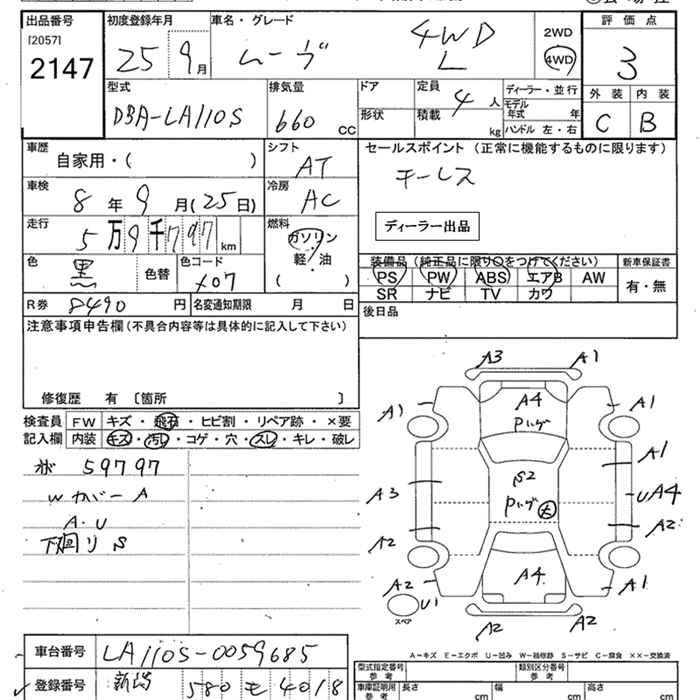 出品番号
[2057]
2147
初度登録年月
25 9月
車名・グレード
ムーヴ
4WD
L
2WD
4WD
評価点
3
外装 内装
C B
型式
DBA-LA110S
排気量
660 CC
ドア
形状
定員
4人
積載
kg
ディーラー・並行
モデル年式 年
ハンドル 左・右
車歴
自家用・( )
シフト
AT
セールスポイント(正常に機能するものに限ります)
キーレス
ディーラー出品
車検
8年9月(25日)
冷房
AC
走行
5万9千797km
燃料
ガソリン
軽・油
( )
色
黒
色替
色コード
X07
装備品(純正品に限り○をつけてください)
PS PW ABS エアB AW
SR ナビ TV カワ
新車保証書
有・無
R券 8490円
名変通知期限 月 日
後日品
注意事項申告欄(不具合内容等は具体的に記入して下さい)
修復歴 有〔箇所 〕
検査員記入欄
FW キズ・飛石・ヒビ割・リペア跡・×要
内装 キズ・汚レ・コゲ・穴・スレ・キレ・破レ
59797
Wカバー A
A・U
下回り S
A3 A1
A4
Pハゲ
A1 A1
A1
S2
Pハゲ
A3
UA4
A2 A2
A4
A2 A1
U1
スペア
A2 A2
A-キズ E-エクボ U-凹み W-補修跡 S-サビ C-腐食 XX-交換済
車台番号
LA110S-0059685
登録番号
新潟 580 モ 4018
型式指定番号
参考
類別区分番号
参考
車庫証明用
参考
長さ cm
幅 cm
高さ cm